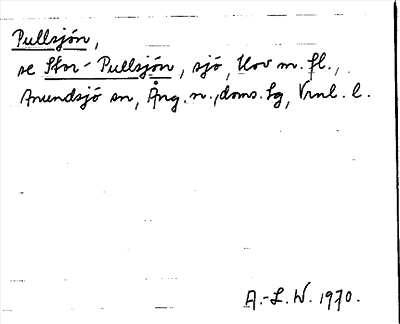 Pullsjön,
se Stor-Pullsjön, sjö, Hov m. fl.,
Anundsjö sn, Ång. n., doms. lg, Vrnl. l.
A.-L. W. 1970.